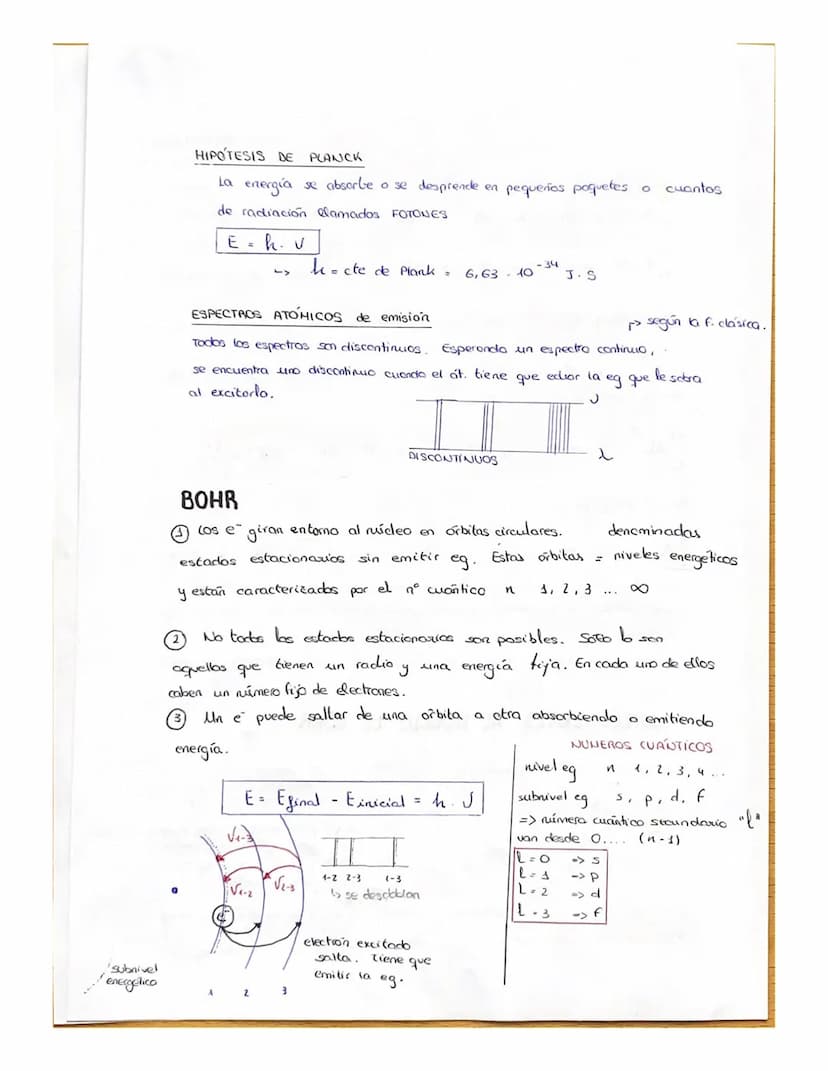 HIPÓTESIS DE PLANCK
La energía se absorbe o se desprende en pequeños paquetes o cuantos
de radiación llamados FOTONES
E = h. ν
↳ h = cte de Plank = 6,63 . 10⁻³⁴ J.S
ESPECTROS ATÓMICOS de emisión
↱ según la f. clásica.
Todos los espectros son discontinuos. Esperando un espectro continuo,
se encuentra uno discontinuo cuando el át. tiene que echar la eg que le sobra
al excitarlo.
ν
DISCONTÍNUOS
λ
BOHR
① Los e⁻ giran entorno al núcleo en órbitas circulares. denominadas
estados estacionarios sin emitir eg. Estas órbitas = niveles energéticos
y están caracterizados por el nº cuántico n 1, 2, 3 ... ∞
② No todos los estados estacionarios son posibles. Solo lo son
aquellos que tienen un radio y una energía fija. En cada uno de ellos
caben un número fijo de electrones.
③ Un e⁻ puede saltar de una órbita a otra absorbiendo o emitiendo
energía.
E = E final - E inicial = h . ν
ν1-3
ν1-2
ν2-3
e⁻
1-2 2-3 1-3
↳ se desdoblan
electrón excitado
salta. Tiene que
emitir la eg.
subnivel
energético
1 2 3
NUMEROS CUÁNTICOS
nivel eg n 1, 2, 3, 4 ...
subnivel eg s, p, d, f
=> número cuántico secundario "l"
van desde 0.... (n-1)
l = 0 => s
l = 1 => p
l = 2 => d
l = 3 => f